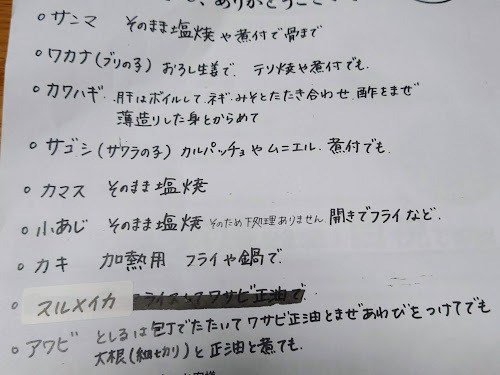 ありがとうご
○ サンマ そのまま塩焼や煮付で骨まで
○ ワカナ(ブリの子) おろし生姜で、テリ焼や煮付でも.
○ カワハギ .肝はボイルして.ネギ.みそとたたき合わせ.酢をまぜ
薄造りした身とからめて
○ サゴシ(サワラの子) カルパッチョやムニエル.煮付でも.
○ カマス そのまま塩焼
○ 小あじ そのまま塩焼 そのため下処理ありません 開きでフライなど.
○ カキ 加熱用 フライや鍋で.
○ スルメイカ ライスしてワサビ正油で
○ アワビ としるは包丁でたたいてワサビ正油とまぜあわびをつけてでも
大根(細切り)と正油と煮ても.